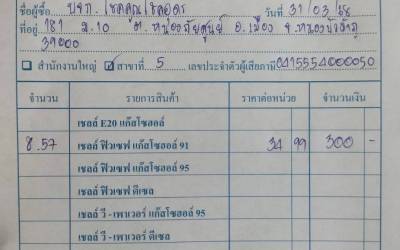 ชื่อผู้ซื้อ หจก. โชคคูณโชคอุดร วันที่ 31/03/68
ที่อยู่ 181 ม.10 ต.หนองภัยศูนย์ อ.เมือง จ.หนองบัวลำภู
39000
สำนักงานใหญ่ ☑ สาขาที่ 5 เลขประจำตัวผู้เสียภาษี 0415554000050
จำนวน รายการสินค้า ราคาต่อหน่วย จำนวนเงิน
เชลล์ E20 แก๊สโซฮอล์
8.57 เชลล์ ฟิวเซฟ แก๊สโซฮอล์ 91 34 99 300 -
เชลล์ ฟิวเซฟ แก๊สโซฮอล์ 95
เชลล์ ฟิวเซฟ ดีเซล
เชลล์ วี - เพาเวอร์ แก๊สโซฮอล์ 95
เชลล์ วี - เพาเวอร์ ดีเซล